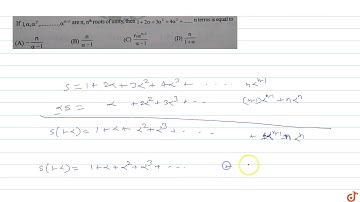 If 1, α, α², ........., αⁿ⁻¹ are n, nᵗʰ roots of unity, then 1 + 2α + 3α² + 4α³ + ..... n terms is equal to
(A) n/(α-1) (B) n/(α-1) (C) /(α-1) (D)
S = 1 + 2α + 3α² + 4α³ + ..... nαⁿ⁻¹
αS = α + 2α² + 3α³ + ... (n-1)αⁿ⁻¹ + nαⁿ
S(1-α) = 1 + α + α² + α³ + ... + αⁿ
S(1-α) = 1 + α + α² + α³ + ...